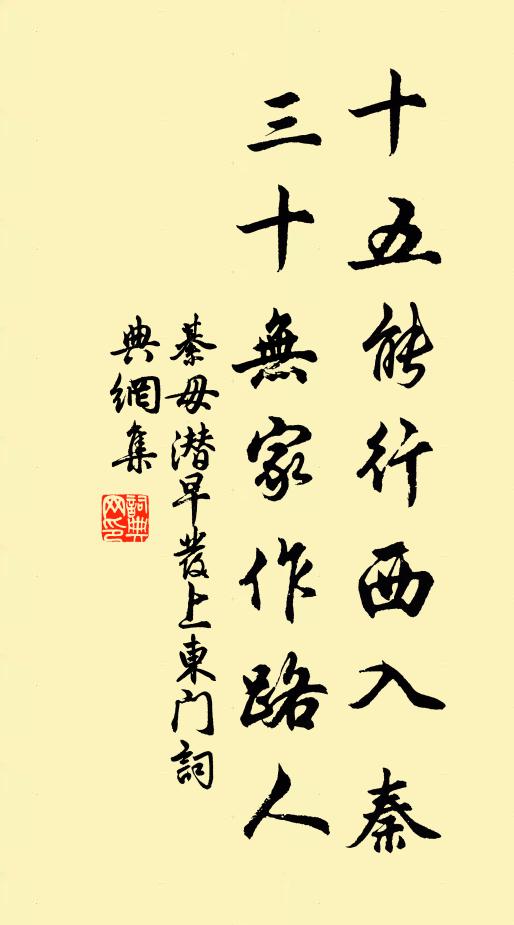 十五能行西入秦
三十無家作路人
綦毋潛早發上東門詞
典網集
詞典
网印